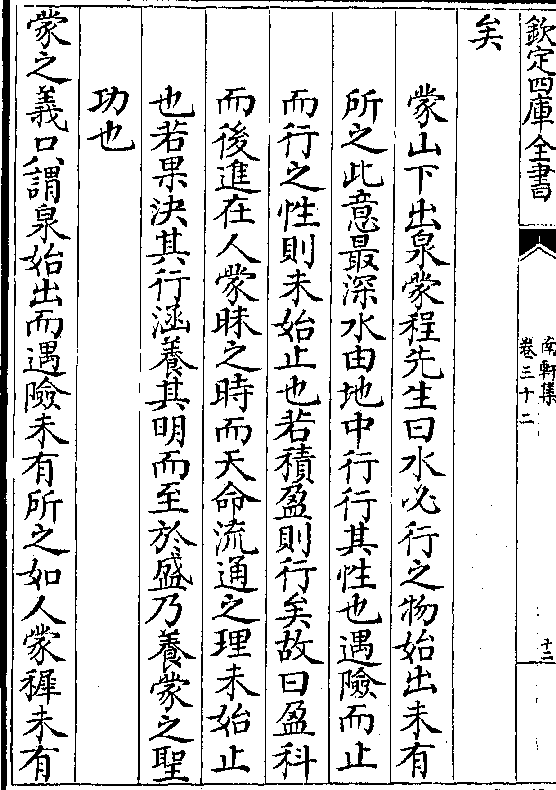 欽定四庫全書
南軒集
卷三十二
十三
矣
蒙山下出泉蒙程先生曰水必行之物始出未有
所之此意最深水由地中行行其性也遇險而止
而行之性則未始止也若積盈則行矣故曰盈科
而後進在人蒙昧之時而天命流通之理未始止
也若果決其行涵養其明而至於盛乃養蒙之聖
功也
蒙之義只謂泉始出而遇險未有所之如人蒙穉未有